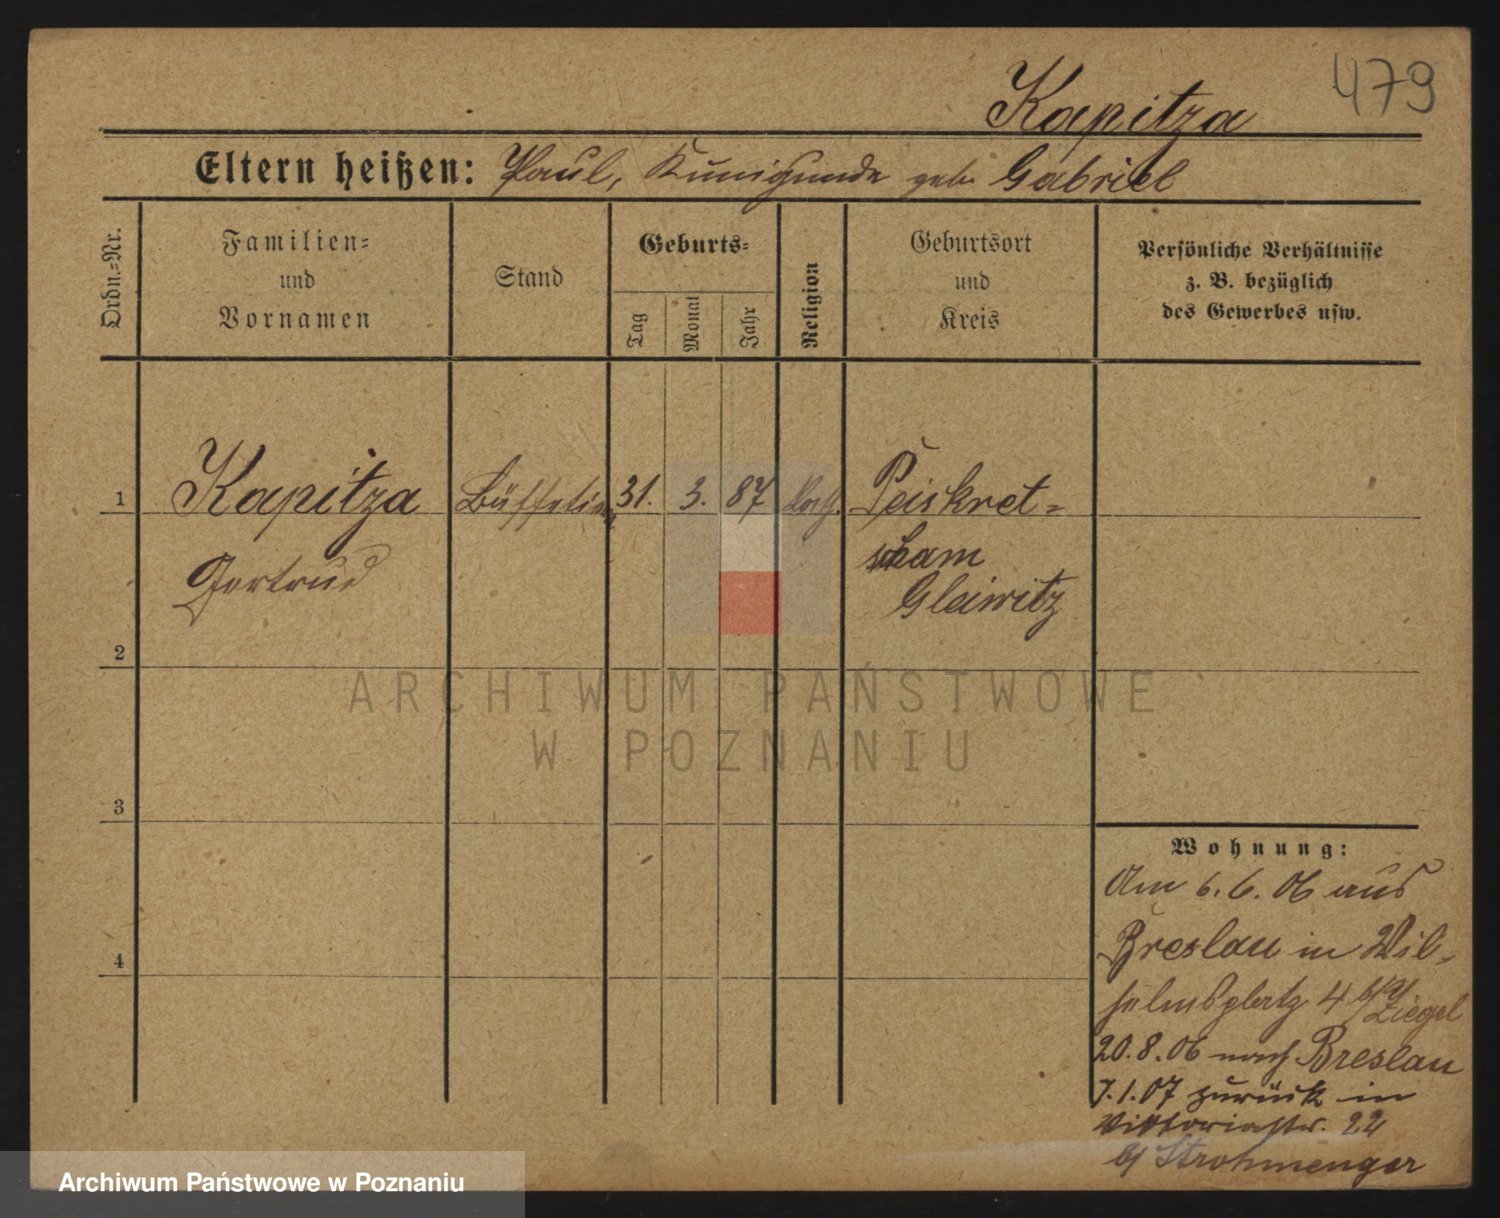 479
Kapitza
Eltern heißen: Paul, Kunigunde geb. Gabriel
Ordn.-Nr.
Familien-
und
Vornamen
Stand
Geburts-
Tag
Monat
Jahr
Religion
Geburtsort
und
Kreis
Persönliche Verhältnisse
z. B. bezüglich
des Gewerbes usw.
1 Kapitza Büffetier 31. 3. 87 kath. Peiskret-
Gertrud scham
Gleiwitz
2
3
4
Wohnung:
Am 6. 6. 06 aus
Breslau in Wil-
helmsplatz 4 Ziegel
20. 8. 06 nach Breslau
7. 1. 07 zurück in
Viktoriastr. 22
b/ Strohmenger
ARCHIWUM PAŃSTWOWE
W POZNANIU
Archiwum Państwowe w Poznaniu